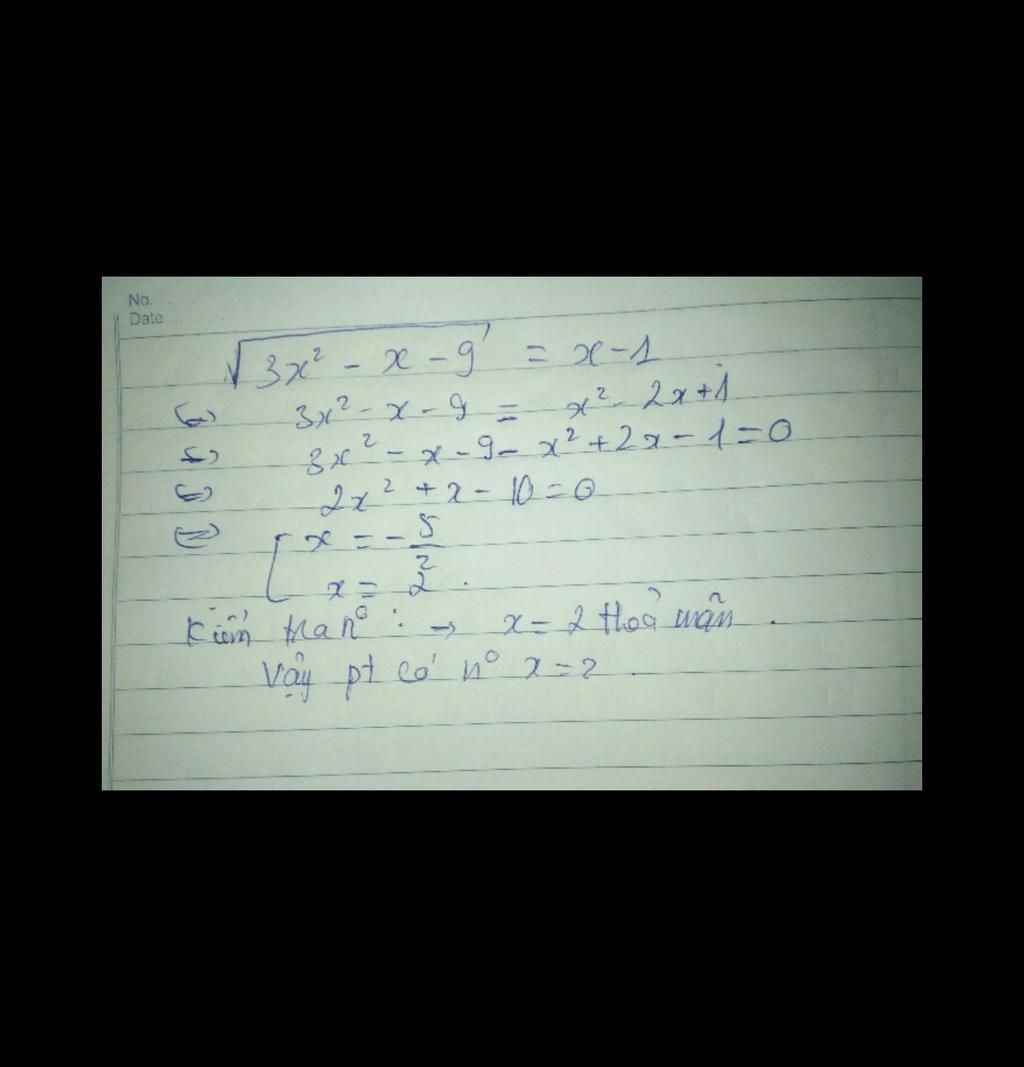 No. ....
Date ........
√(3x² - x - 9) = x - 1
⇔ 3x² - x - 9 = x² - 2x + 1
⇔ 3x² - x - 9 - x² + 2x - 1 = 0
⇔ 2x² + x - 10 = 0
⇔ [ x = -5/2
x = 2 .
Kiểm tra n⁰ : → x = 2 thoả mãn .
Vậy pt có n⁰ x = 2 .